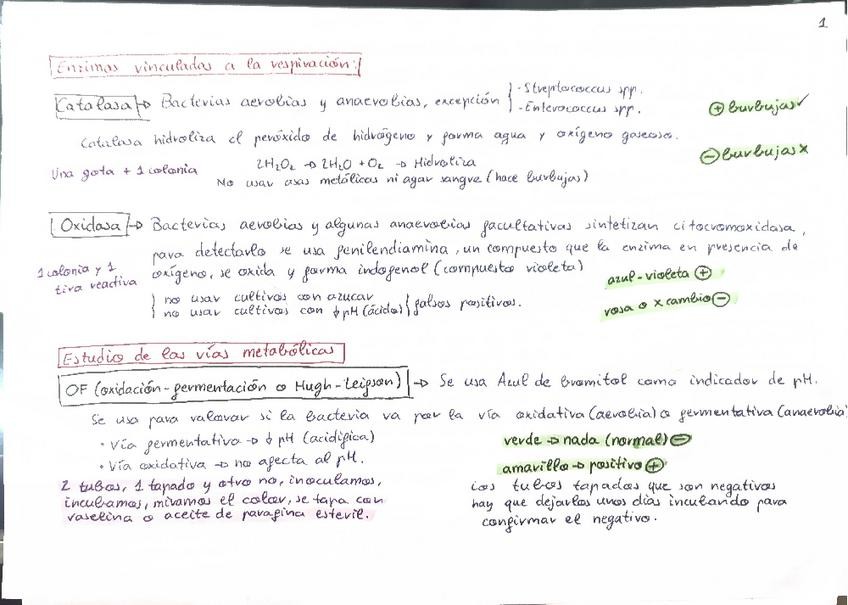 1
Enzimas vinculadas a la respiración:
Catalasa → Bacterias aerobias y anaerobias, excepción } · Streptococcus spp.
- Enterococcus spp.
⊕ burbujas ✓
Catalasa hidroliza el peróxido de hidrógeno y forma agua y oxígeno gaseoso.
⊖ burbujas x
Una gota + 1 colonia
2H₂O₂ → 2H₂O + O₂ → Hidroliza
No usar asas metálicas ni agar sangre (hace burbujas)
Oxidasa → Bacterias aerobias y algunas anaerobias facultativas sintetizan citocromoxidasa,
para detectarlo se usa fenilendiamina, un compuesto que la enzima en presencia de
oxígeno, se oxida y forma indofenol (compuesto violeta)
1 colonia y 1
tira reactiva
azul-violeta ⊕
rosa o x cambio ⊖
} no usar cultivos con azucar
no usar cultivos con ↓ pH (ácido) } falsos positivos.
Estudio de las vías metabólicas
OF (oxidación-fermentación o Hugh-Leifson) → Se usa Azul de bromitol como indicador de pH.
Se usa para valorar si la bacteria va por la vía oxidativa (aerobia) o fermentativa (anaerobia)
· Vía fermentativa → ↓ pH (acidifica)
· Vía oxidativa → no afecta al pH.
verde → nada (normal) ⊖
amarillo → positivo ⊕
2 tubos, 1 tapado y otro no, inoculamos,
incubamos, miramos el color, se tapa con
vaselina o aceite de parafina esteril.
Los tubos tapados que son negativos
hay que dejarlos unos días incubando para
confirmar el negativo.